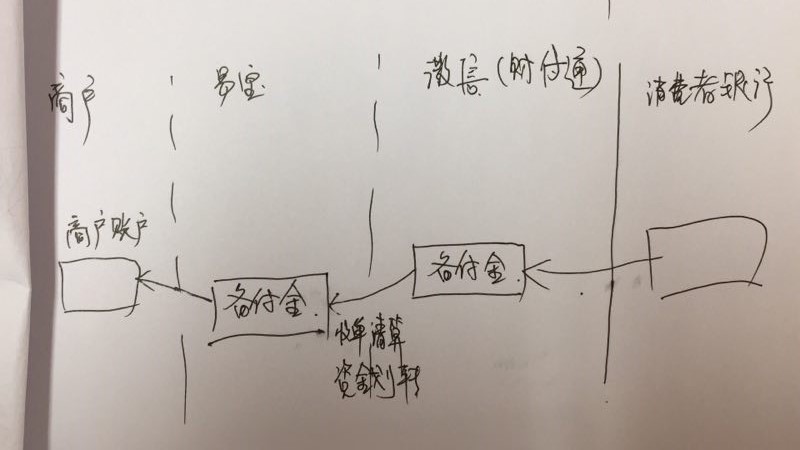 商户
易宝
微信(财付通)
消费者银行
商户账户
备付金
备付金
收单清算
资金划转